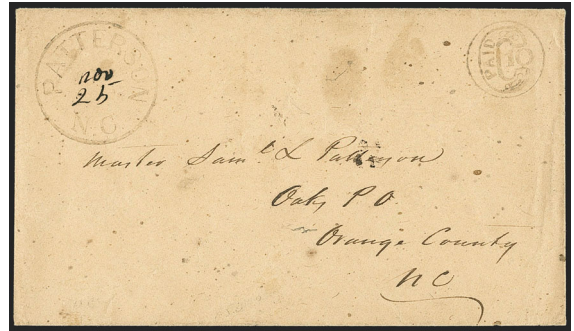 PATTERSON
Nov
25
N.C.
PAID
10
Master Saml L Patterson
Oaks P.O.
Orange County
NC